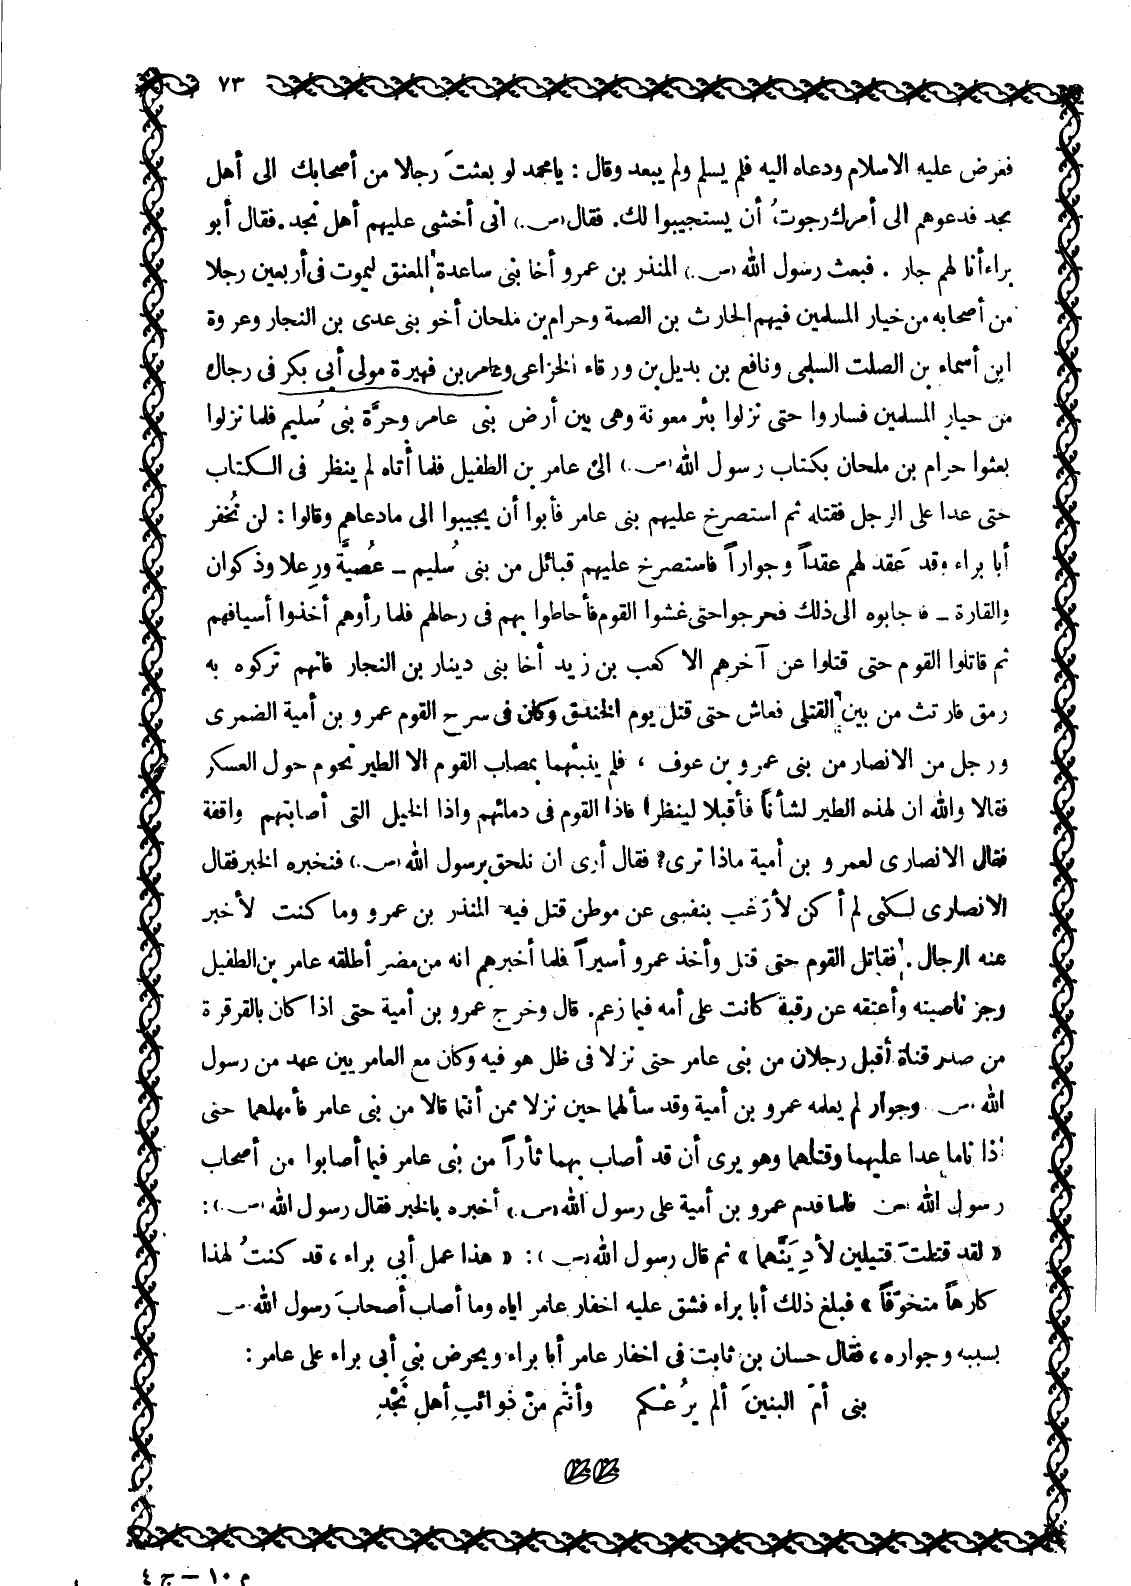 ٧٣
فعرض عليه الاسلام ودعاه اليه فلم يسلم ولم يبعد وقال : يامحمد لو بعثتَ رجالا من أصحابك الى أهل
نجد فدعوهم الى أمرك رجوتُ أن يستجيبوا لك. فقال (ص) انى أخشى عليهم أهل نجد. فقال أبو
براء أنا لهم جار . فبعث رسول الله (ص) المنذر بن عمرو أخا بنى ساعدة المعنق ليموت فى أربعين رجلا
من أصحابه من خيار المسلمين فيهم الحارث بن الصمة وحرام بن ملحان أخو بنى عدى بن النجار وعروة
ابن أسماء بن الصلت السلمى ونافع بن بديل بن ورقاء الخزاعى وعامر بن فهيرة مولى أبى بكر فى رجال
من خيار المسلمين فساروا حتى نزلوا بئر معونة وهى بين أرض بنى عامر وحرَّة بنى سُليم فلما نزلوا
بعثوا حرام بن ملحان بكتاب رسول الله (ص) الى عامر بن الطفيل فلما أتاه لم ينظر فى الكتاب
حتى عدا على الرجل فقتله ثم استصرخ عليهم بنى عامر فأبوا أن يجيبوا الى مادعاهم وقالوا : لن نُخفر
أبا براء وقد عَقد لهم عقداً وجواراً فاستصرخ عليهم قبائل من بنى سُليم ــ عُصيَّة ورِعلا وذكوان
والقارة ــ فاجابوه الى ذلك فخرجوا حتى غشوا القوم فأحاطوا بهم فى رحالهم فلما رأوهم أخذوا أسيافهم
ثم قاتلوا القوم حتى قتلوا عن آخرهم الا كعب بن زيد أخا بنى دينار بن النجار فانهم تركوه به
رمق فارتث من بين القتلى فعاش حتى قتل يوم الخندق وكان فى سرح القوم عمرو بن أمية الضمرى
ورجل من الانصار من بنى عمرو بن عوف ، فلم ينبئهما بمصاب القوم الا الطير تحوم حول العسكر
فقالا والله ان لهذه الطير لشأناً فأقبلا لينظرا فاذا القوم فى دمائهم واذا الخيل التى أصابتهم واقفة
فقال الانصارى لعمرو بن أمية ماذا ترى؟ فقال أرى ان نلحق برسول الله (ص) فنخبره الخبر فقال
الانصارى لكنى لم أكن لأرغب بنفسى عن موطن قتل فيه المنذر بن عمرو وما كنت لأخبر
عنه الرجال . فقاتل القوم حتى قتل وأخذ عمرو أسيراً فلما أخبرهم انه من مضر أطلقه عامر بن الطفيل
وجز ناصيته وأعتقه عن رقبة كانت على أمه فيما زعم. قال وخرج عمرو بن أمية حتى اذا كان بالقرقرة
من صدر قناة أقبل رجلان من بنى عامر حتى نزلا فى ظل هو فيه وكان مع العامريين عهد من رسول
الله (ص) وجوار لم يعلمه عمرو بن أمية وقد سألهما حين نزلا ممن أنتما قالا من بنى عامر فأمهلهما حتى
اذا ناما عدا عليهما وقتلهما وهو يرى أن قد أصاب بهما ثأراً من بنى عامر فيما أصابوا من أصحاب
رسول الله (ص) فلما قدم عمرو بن أمية على رسول الله (ص) أخبره بالخبر فقال رسول الله (ص) :
« لقد قتلتَ قتيلين لأدِيَنَّهما » ثم قال رسول الله (ص) : « هذا عمل أبى براء ، قد كنتُ لهذا
كارهاً متخوّفاً » فبلغ ذلك أبا براء فشق عليه اخفار عامر اياه وما أصاب أصحابَ رسول الله (ص)
بسببه وجواره ، فقال حسان بن ثابت فى اخفار عامر أبا براء ويحرض بنى أبى براء على عامر :
بنى أمّ البنينَ ألم يرُعْكم وأنتُم منْ ذوائبِ أهلِ نَجْدِ
م ١٠ ــ ج ٤